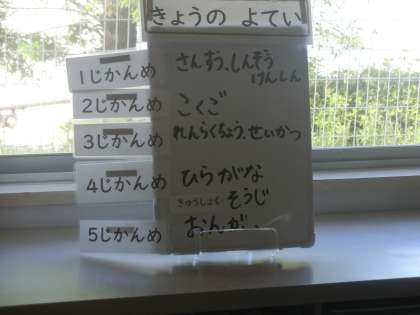 きょうの よてい
1じかんめ さんすう、しんぞう
けんしん
2じかんめ こくご
3じかんめ れんらくちょう、せいかつ
4じかんめ ひらがな
きゅうしょく・そうじ
5じかんめ おんがく